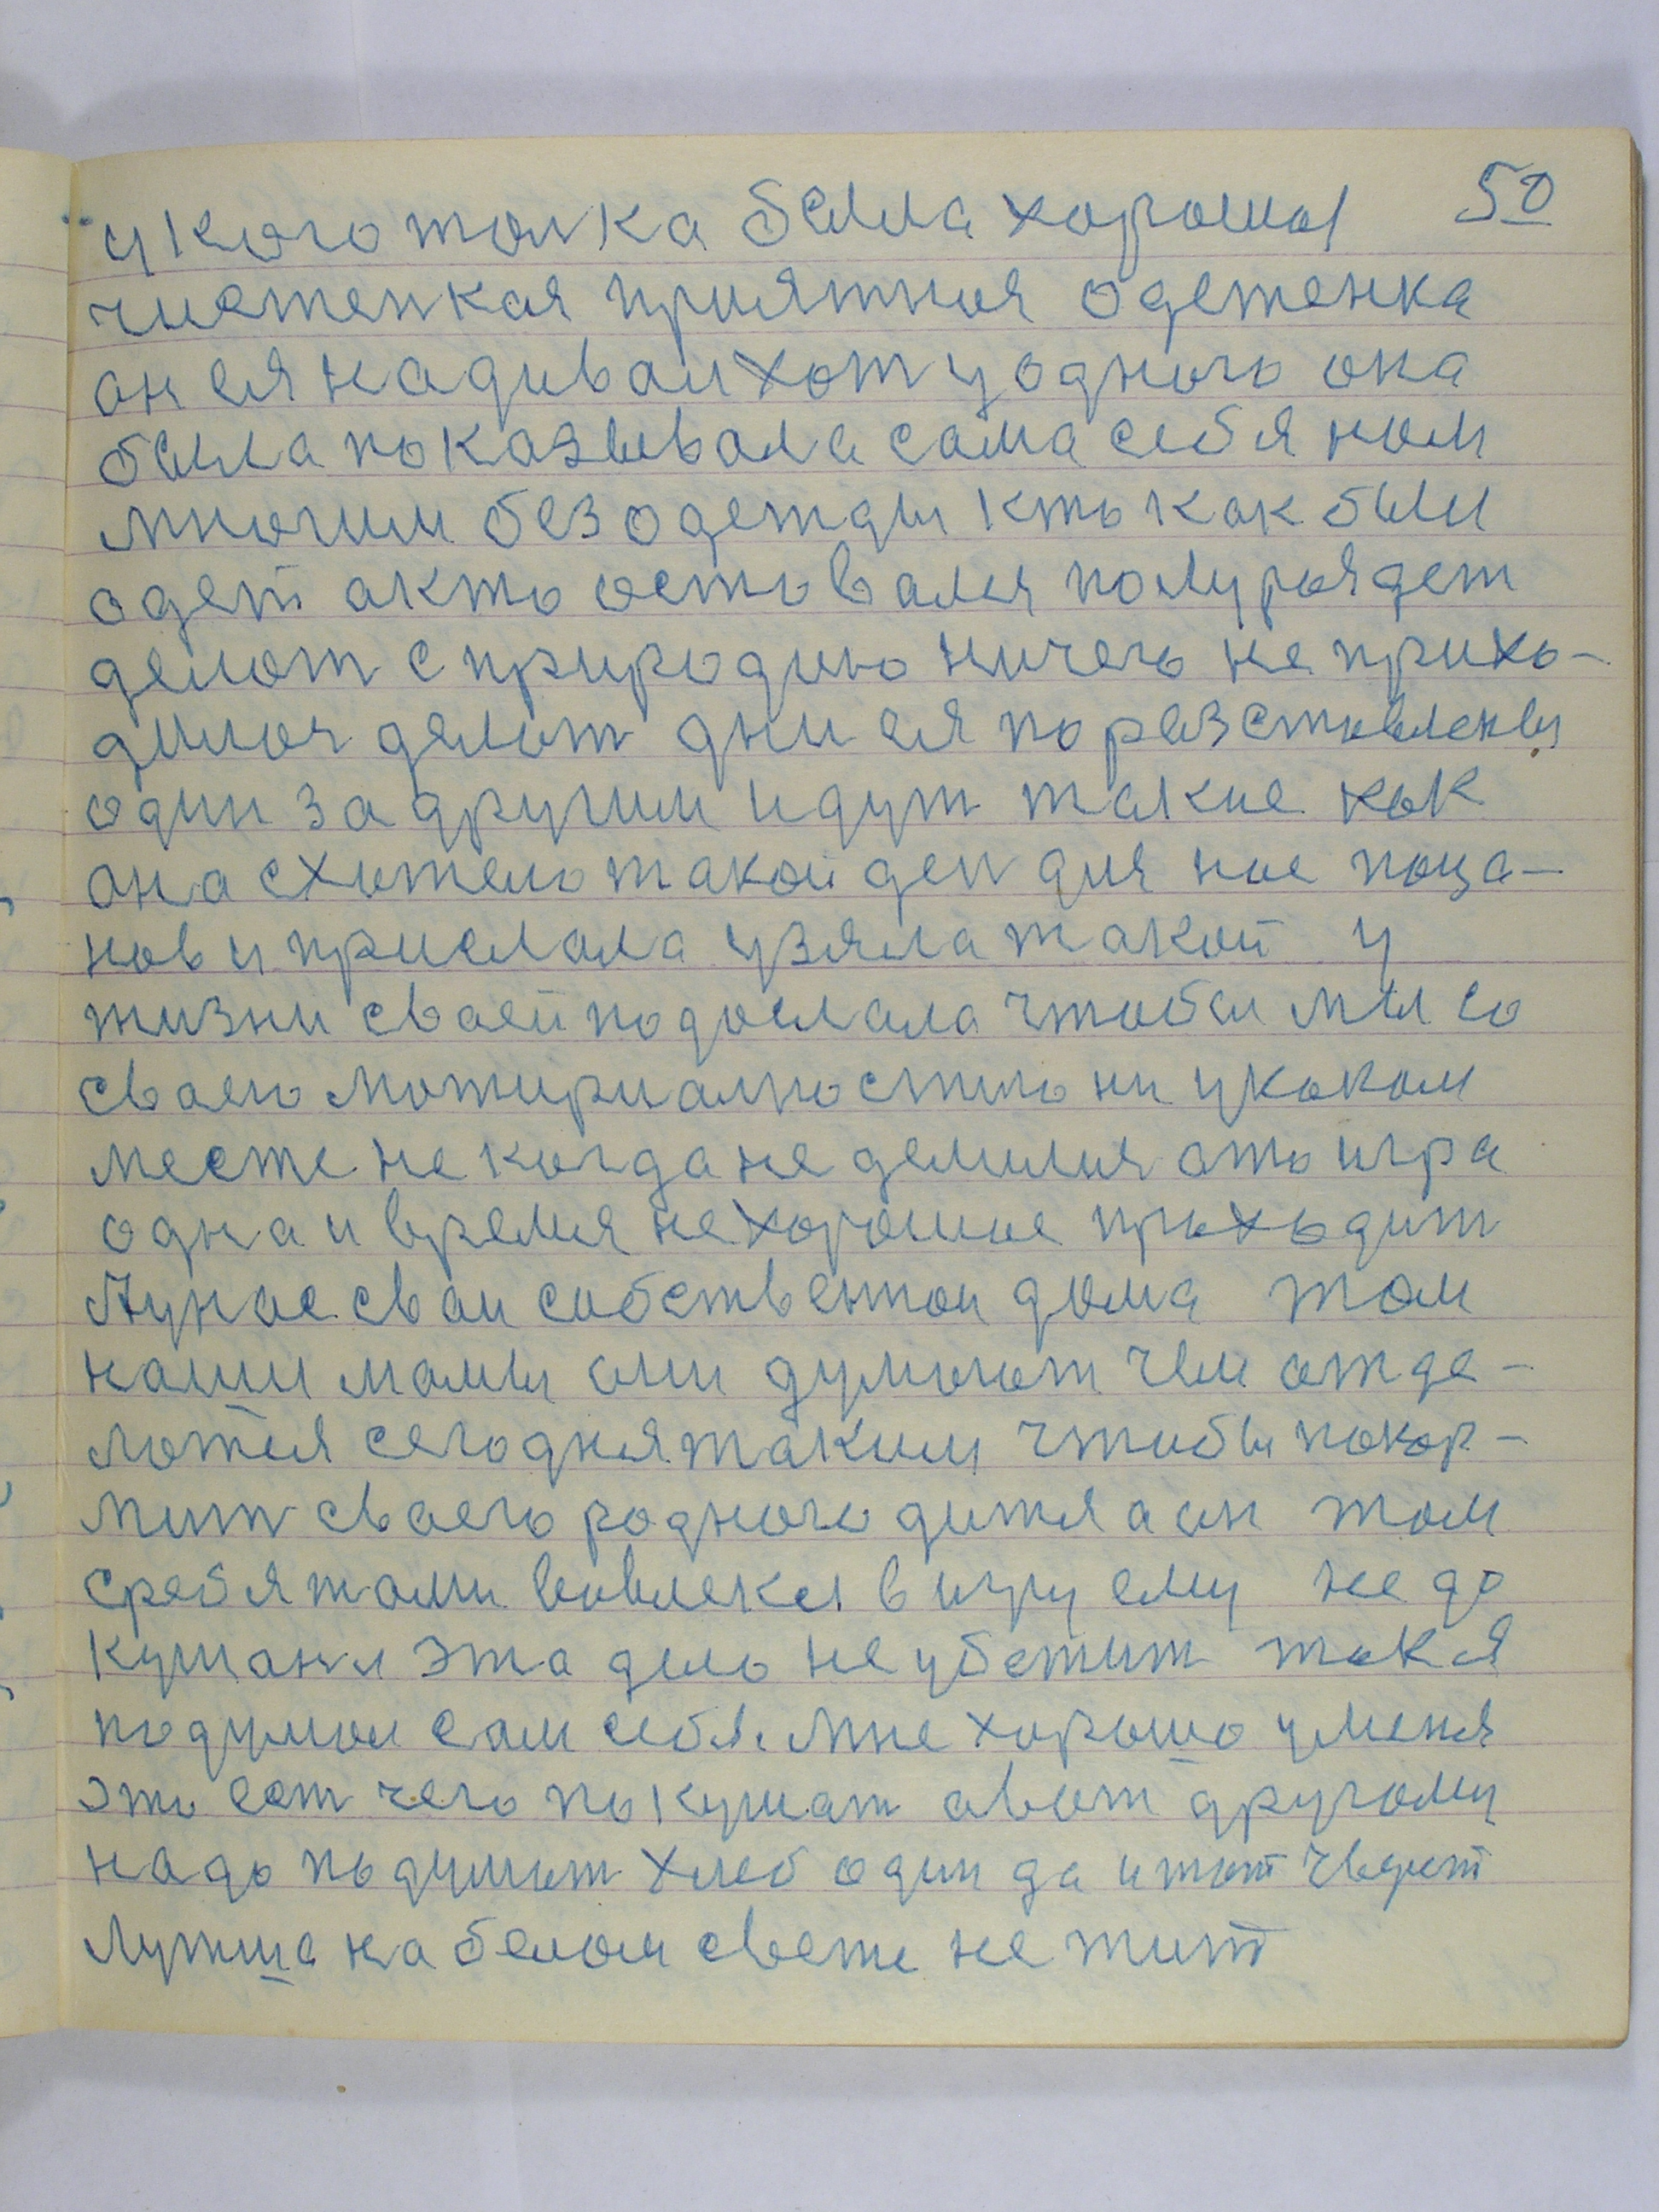 50
у кого толка была хорошоя
чистенкая приятноя одеженка
он ея надивал хот у одного она
была показывала сама себя нам
многим без одежды кто как был
одет а кто оставался полурядет
делат с природаю ничего не прихо-
дилос делат дни ея по раз ставлены
один за другим идут такие как
она схотело такой ден для нас паца-
нов и прислала узяла такой у
жизни своей подослала чтобы мы со
своею мотириалностью ни у каком
месте не когда не делилис ато игра
одна и время не хорошое приходит
А у нас свои собственнои дома там
наши мамы они думают чем отде-
лотся сегодня таким чтобы покор-
мит своего родного дитя а он там
с ребятами вовлекся в игру ему не до
кушаня эта дело не убежит так я
подумал сам себя. Мне хорошо у меня
это ест чего покушат а вот другому
надо подумат хлеб один да и тот
Лутша на белом свете не жит